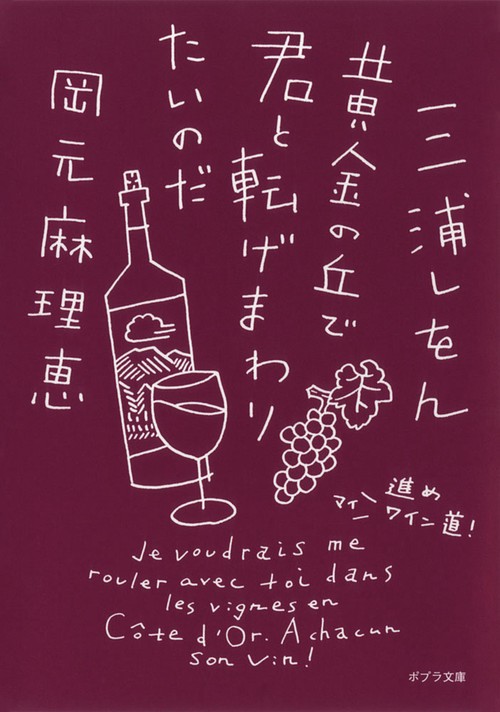 三浦しをん
黄金の丘で
君と転げまわり
たいのだ
岡元麻理恵
進め
マイ
ワイン道!
Je voudrais me
rouler avec toi dans
les vignes en
Côte d'Or. A chacun
son vin!
ポプラ文庫